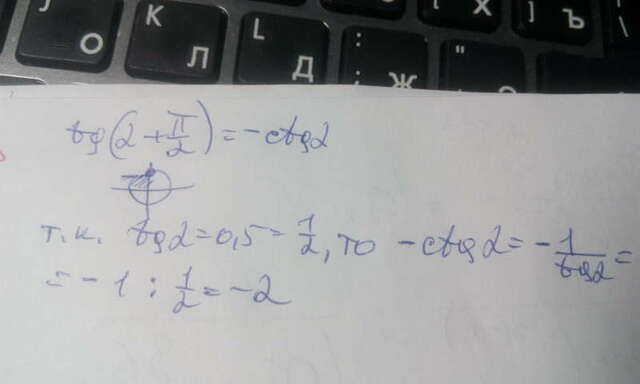 Х ] Ъ \
J О K Л L Д : ; Ж "
tg(α + π/2) = -ctgα
т.к. tgα = 0,5 = 1/2, то -ctgα = - 1/tgα =
= -1 : 1/2 = -2